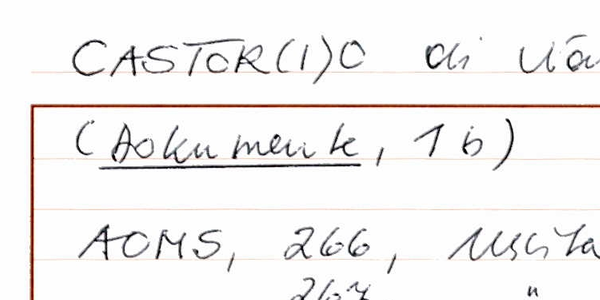 CASTOR(I)O di
(Dokumente, 1b)
AOMS, 266, uscita
267 "